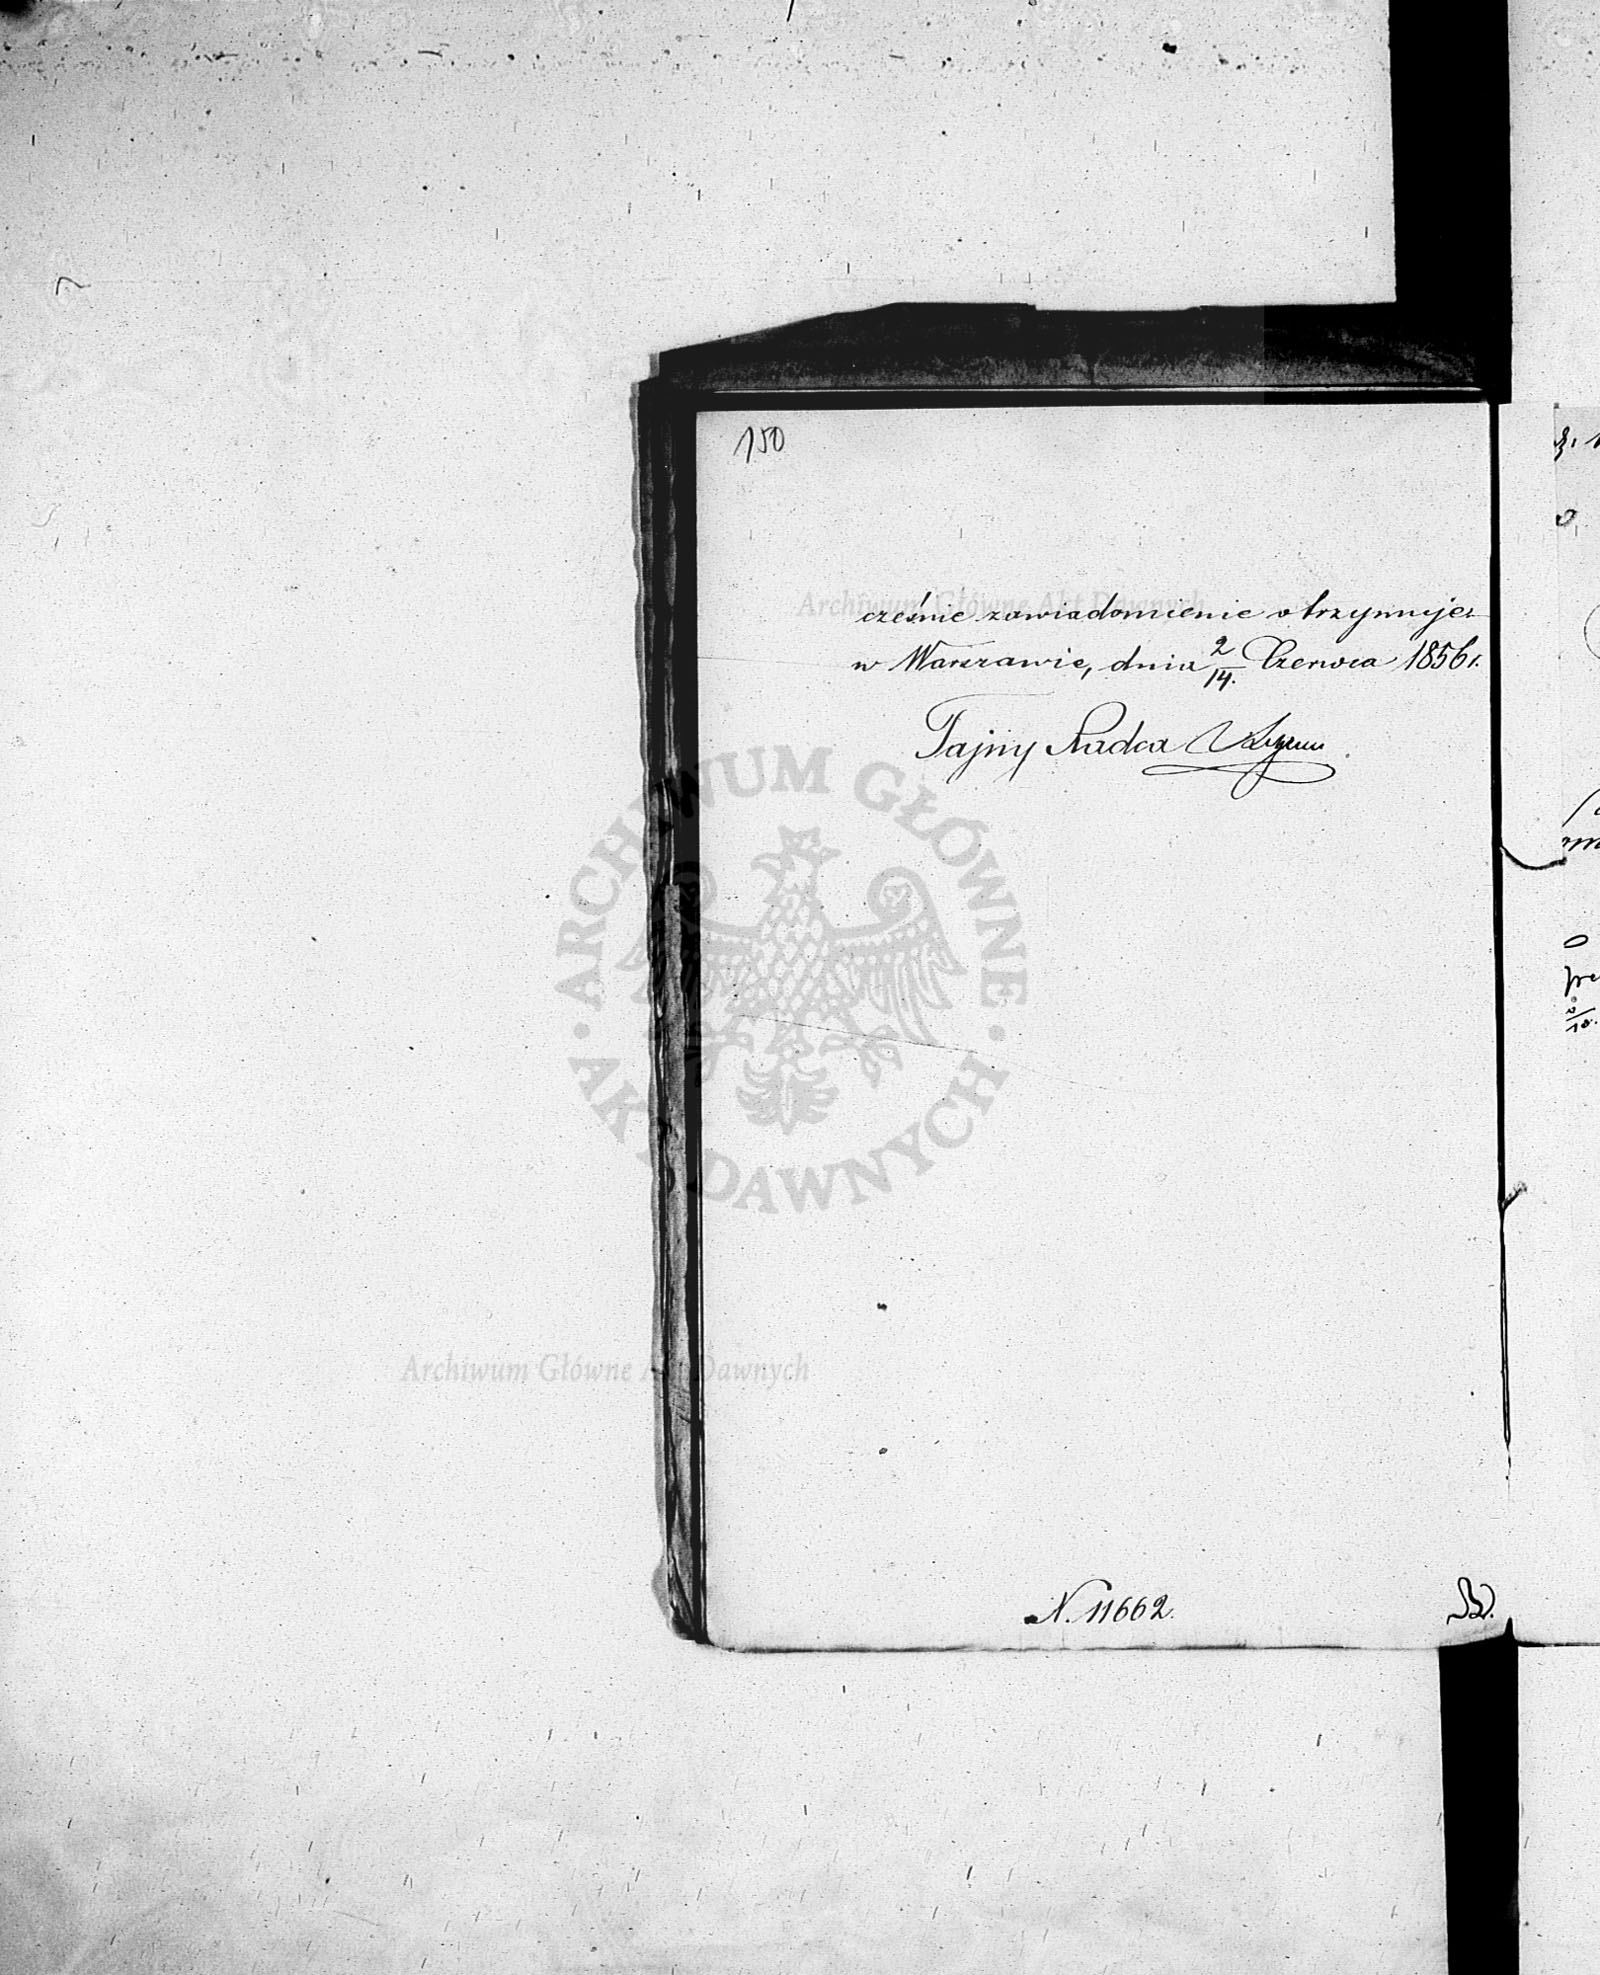 150
cześnie zawiadomienie otrzymuje.
w Warszawie, dnia 2/14. Czerwca 1856 r.
Tajny Radca
N. 11662.
ARCHIWUM GŁÓWNE AKT DAWNYCH
Archiwum Główne Akt Dawnych
Archiwum Główne Akt Dawnych